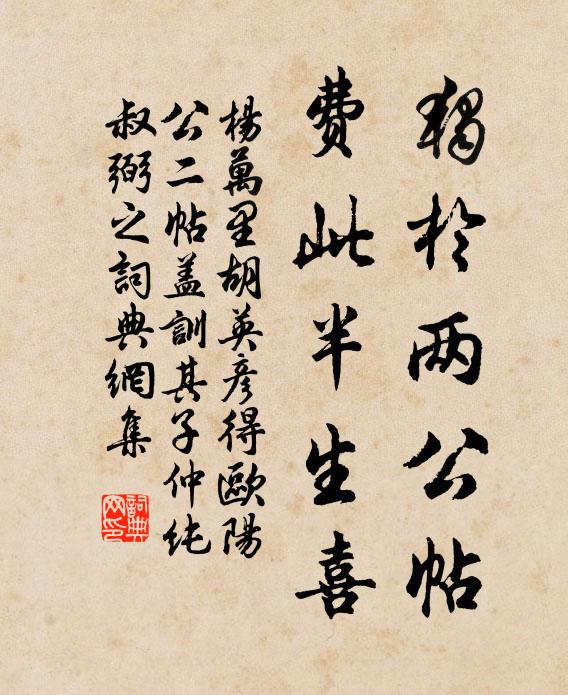 獨於两公帖
費此半生喜
楊萬里胡英彦得歐陽
公二帖盖訓其子仲純
叔弼之詞典網集
詞典网印